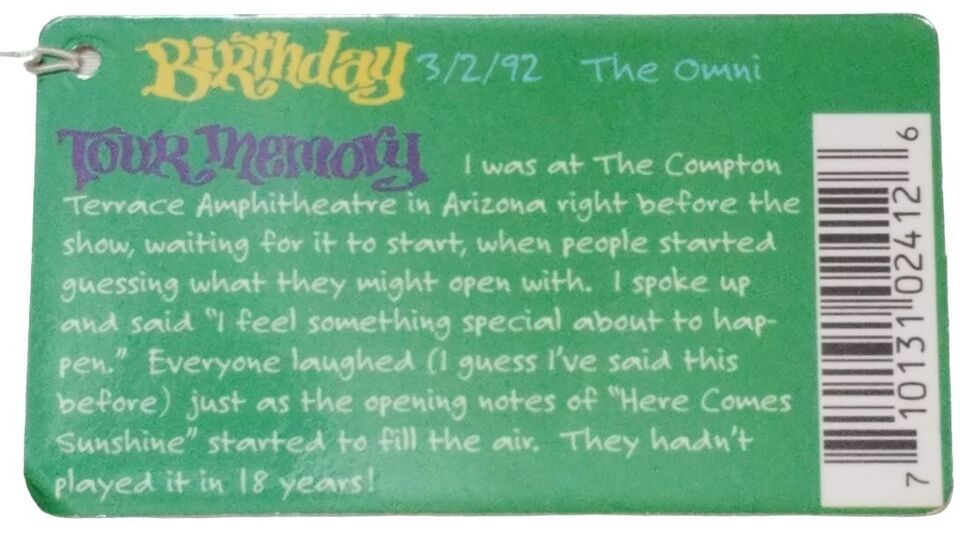 Birthday 3/2/92 The Omni
Tour Memory I was at The Compton
Terrace Amphitheatre in Arizona right before the
show, waiting for it to start, when people started
guessing what they might open with. I spoke up
and said "I feel something special about to hap-
pen." Everyone laughed (I guess I've said this
before) just as the opening notes of "Here Comes
Sunshine" started to fill the air. They hadn't
played it in 18 years!
7 10131 02412 6